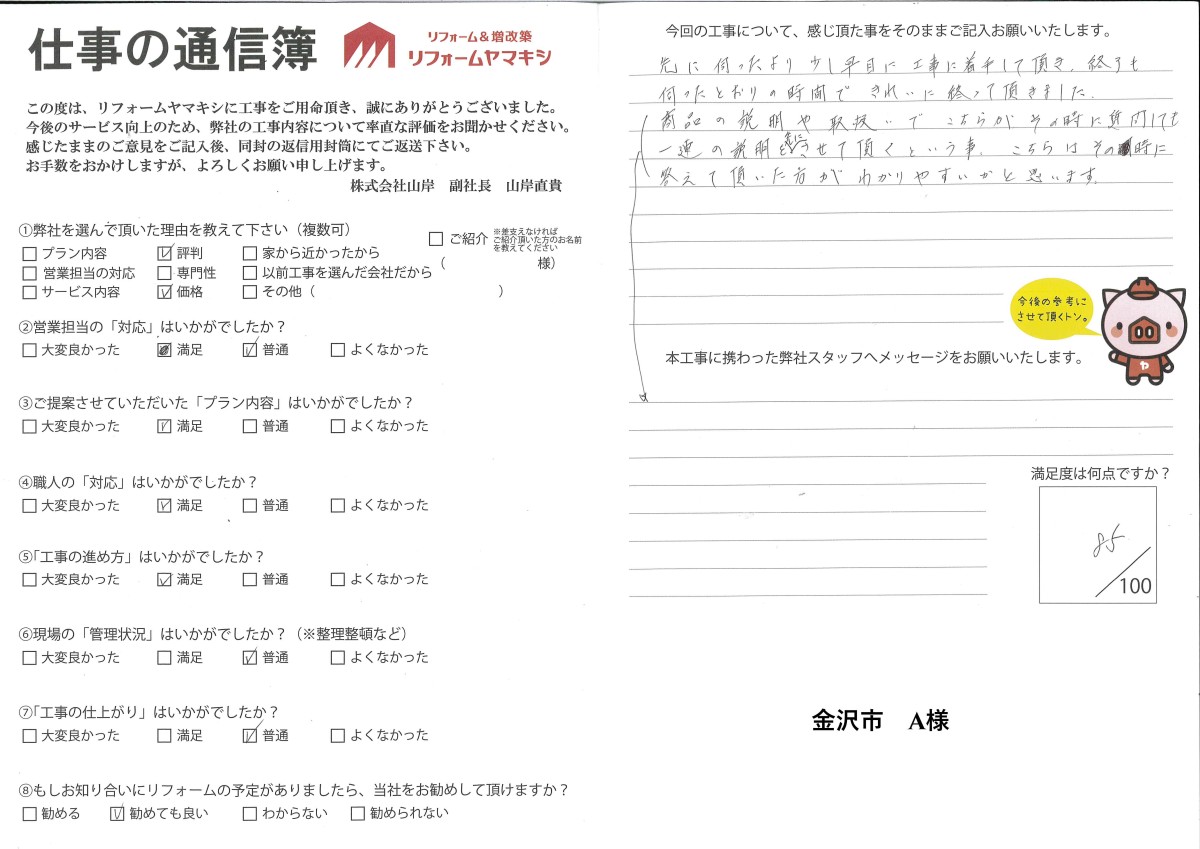 仕事の通信簿
リフォーム&増改築
リフォームヤマキシ
この度は、リフォームヤマキシに工事をご用命頂き、誠にありがとうございました。
今後のサービス向上のため、弊社の工事内容について率直な評価をお聞かせください。
感じたままのご意見をご記入後、同封の返信用封筒にてご返送下さい。
お手数をおかけしますが、よろしくお願い申し上げます。
株式会社山岸 副社長 山岸直貴
①弊社を選んで頂いた理由を教えて下さい（複数可）
□プラン内容 ☑評判 □家から近かったから
□営業担当の対応 □専門性 □以前工事を選んだ会社だから
□サービス内容 ☑価格 □その他（ ）
□ご紹介 ※差支えなければ
ご紹介頂いた方のお名前
を教えてください
（ 様）
②営業担当の「対応」はいかがでしたか？
□大変良かった ■満足 ☑普通 □よくなかった
③ご提案させていただいた「プラン内容」はいかがでしたか？
□大変良かった ☑満足 □普通 □よくなかった
④職人の「対応」はいかがでしたか？
□大変良かった ☑満足 □普通 □よくなかった
⑤「工事の進め方」はいかがでしたか？
□大変良かった ☑満足 □普通 □よくなかった
⑥現場の「管理状況」はいかがでしたか？（※整理整頓など）
□大変良かった □満足 ☑普通 □よくなかった
⑦「工事の仕上がり」はいかがでしたか？
□大変良かった □満足 ☑普通 □よくなかった
⑧もしお知り合いにリフォームの予定がありましたら、当社をお勧めして頂けますか？
□勧める ☑勧めても良い □わからない □勧められない
今回の工事について、感じ頂た事をそのままご記入お願いいたします。
先に伺ったより少し早目に工事に着手して頂き、終了も
伺ったとおりの時間できれいに終って頂きました。
商品の説明や取扱いでこちらがその時に質問しても
一連の説明をさせて頂くという事、こちらはその時に
答えて頂いた方がわかりやすいかと思います。
今後の参考に
させて頂くトン。
ヤ
本工事に携わった弊社スタッフへメッセージをお願いいたします。
満足度は何点ですか？
85
/100
金沢市 A様